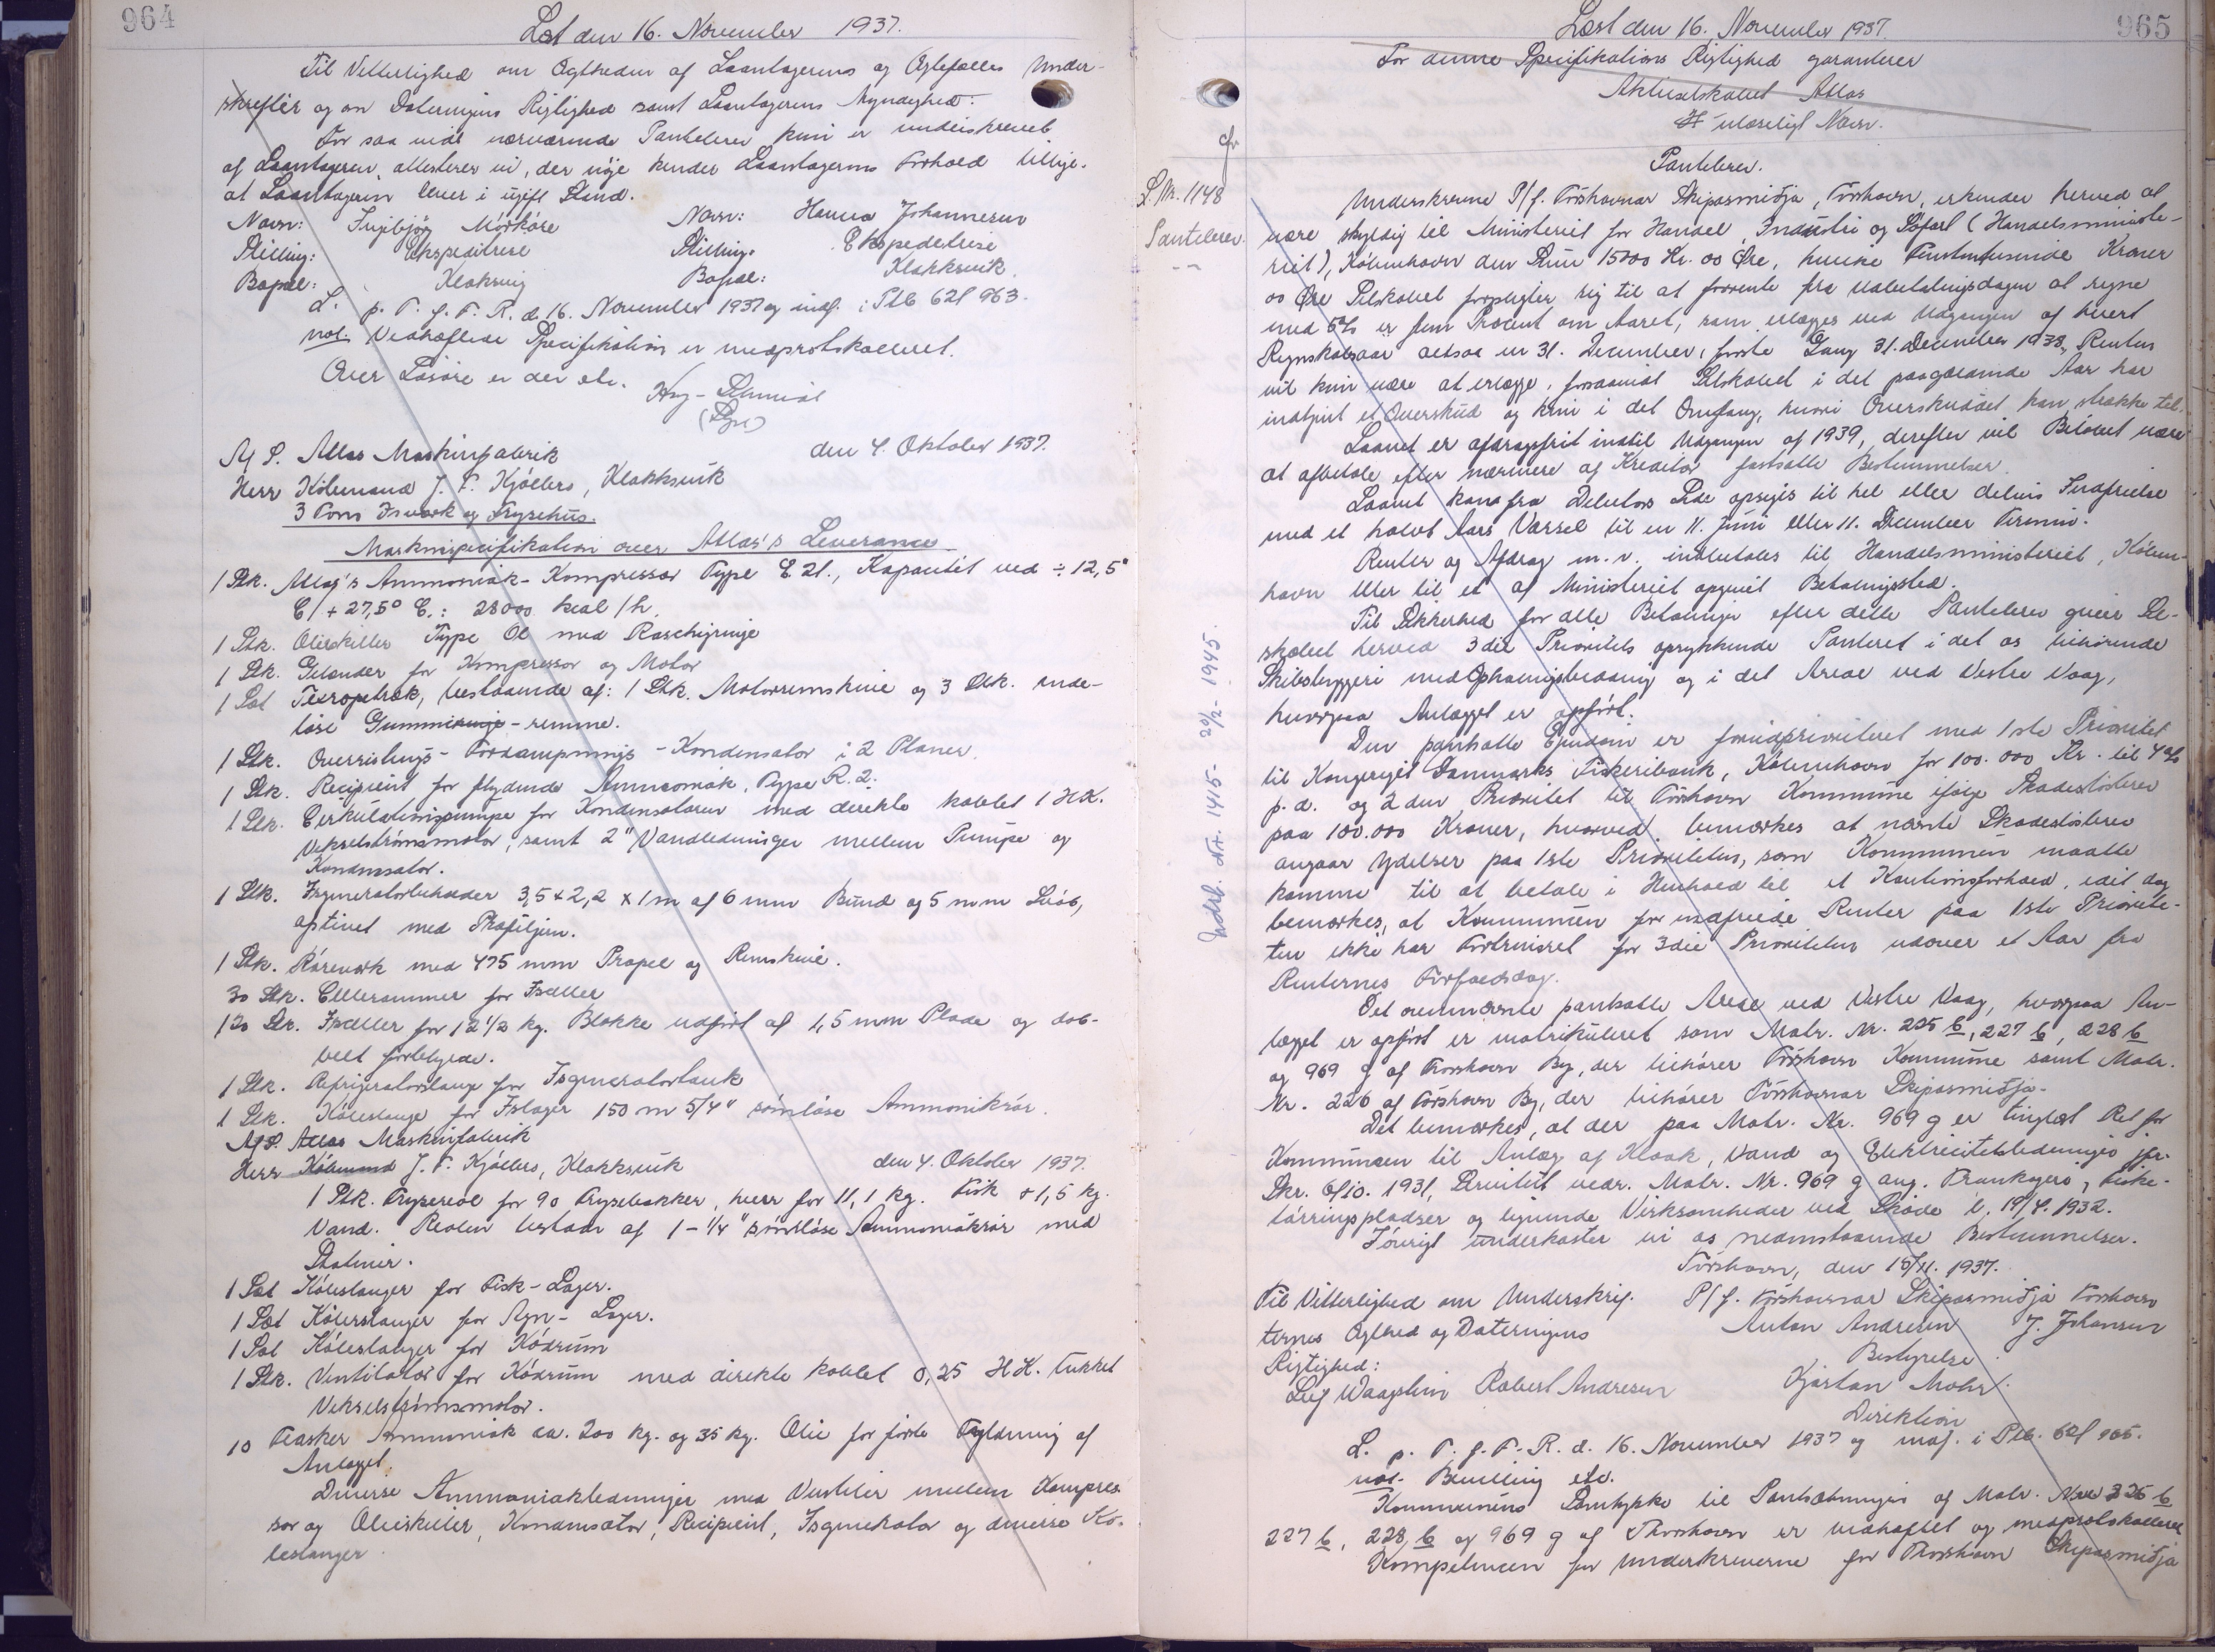 964
Læst den 16. November 1937.
Til Vitterlighed om Ægtheden af Laantagerens og Ægtefælles Under-
skrefter og om Dateringens Rigtighed samt Laantagerens Myndighed:
For saa vidt nærværende Pantebrev kun er underskrevet
af Laantageren, attesterer vi, der nøje kender Laantagerens Forhold tillige.
at Laantageren lever i ugift Stand.
Navn: Ingibjörg Mörköre Navn: Hanna Johannesen
Stilling: Ekspeditrise Stilling: Ekspeditrise
Bopæl: Klaksvig Bopæl: Klakksvik.
L. p. T. f. F. R. d. 16. November 1937 og indf. i Ptb 62f 963.
not. Vedhæftede Specifikation er medprotokolleret.
Over Løsøre er der etc.
Hey-Schmidt
(Lgn)
A/S. Atlas Maskinfabrik den 4. Oktober 1937.
Herr Købmand J. F. Kjølbro, Klakksvik
3 Tons Isværk og Frysehus.
Maskinspecifikation over Atlas's Leverance
1 Stk. Atlas's Ammoniak-Kompressor Type E. 21., Kapacitet ved ÷ 12,5°
C/+27,5° C.: 28000 kcal/h.
1 Stk. Olieskiller Type Ol med Raschigringe
1 Stk. Gelænder for Kompressor og Motor
1 Sæt Texropetræk, bestaaende af: 1 Stk. Motorremskive og 3 Stk. ende-
løse Gummiringe-remme.
1 Stk. Overrislings-Fordampnings-Kondensator i 2 Planer.
1 Stk. Recipient for flydende Ammoniak, Type R. 2.
1 Stk. Cirkulationspumpe for Kondensatoren med direkte koblet 1 HK.
Vekselstrømsmotor, samt 2" Vandledninger mellem Pumpe og
Kondensator.
1 Stk. Isgeneratorbeholder 3,5 x 2,2 x 1 m af 6 mm Bund og 5 mm Svøb,
afstivet med Profiljern.
1 Stk. Røreværk med 475 mm Propel og Remskive.
30 Stk. Cellerammer for Isceller
120 Stk. Isceller for 12 1/2 kg. Blokke udført af 1,5 mm Plade og dob-
belt fortinede.
1 Stk. Refrigeratorslange for Isgeneratortank
1 Stk. Køleslange for Islager 150 m 5/4" sømløse Ammoniakrør.
A/S. Atlas Maskinfabrik
Herr Købmand J. F. Kjølbro, Klakksvik den 4. Oktober 1937.
1 Stk. Frysereol for 90 Frysebakker, hver for 11,1 kg. Fisk + 1,5 kg.
Vand. Reolen bestaar af 1-1/4" sømløse Ammoniakrør med
Stativer.
1 Sæt Køleslanger for Fisk-Lager.
1 Sæt Køleslanger for Agn-Lager.
1 Sæt Køleslanger for Kødrum
1 Stk. Ventilator for Kødrum med direkte koblet 0,25 HK. lukket
Vekselstrømsmotor.
10 Flasker Ammoniak ca. 200 kg. og 35 kg. Olie for første Fyldning af
Anlægget.
Diverse Ammoniakledninger med Ventiler mellem Kompres-
sor og Olieskiller, Kondensator, Recipient, Isgenerator og diverse Kø-
leslanger.
965
Læst den 16. November 1937.
For denne Specifikations Rigtighed garanterer
Aktieselskabet Atlas
ulæseligt Navn.
cfr
L. Nr. 1148
Pantebrev.
Pantebrev.
Underskrevne P/f. Tórshavnar Skipasmiðja, Tórshavn, erkender herved at
være skyldig til Ministeriet for Handel, Industri og Søfart (Handelsministe-
riet), København den Sum 15000 Kr. 00 Øre, hvilke Femtentusinde Kroner
00 Øre Selskabet forpligter sig til at forrente fra Udbetalingsdagen at regne
med 5% er fem Procent om Aaret, som erlægges ved Udgangen af hvert
Regnskabsaar altsaa en 31. December, første Gang 31. December 1938, Renten
vil kun være at erlægge, forsaavidt Selskabet i det paagældende Aar har
indtjent et Overskud og kun i det Omfang, hvori Overskuddet kan strække til.
Laanet er afdragsfrit indtil Udgangen af 1939, derefter vil Beløbet være
at afbetale efter nærmere af Kreditor fastsatte Bestemmelser.
Laanet kan fra Debitors Side opsiges til hel eller delvis Indfrielse
med et halvt Aars Varsel til en 11. Juni eller 11. December Termin.
Renter og Afdrag m. v. indbetales til Handelsministeriet, Køben-
havn eller til et af Ministeriet opgivet Betalingssted.
Til Sikkerhed for alle Betalinger efter dette Pantebrev giver Sel-
skabet herved 3die Prioritets oprykkende Panteret i det os tilhørende
Skibsbyggeri med Ophalingsbedding og i det Areal ved Vestre Vaag,
hvorpaa Anlægget er opført.
Den pantsatte Ejendom er forudprioriteret med 1ste Prioritet
til Kongeriget Danmarks Fiskeribank, København for 100.000 Kr. til 4%
p. a. og 2den Prioritet til Tórshavn Kommune ifølge Skadesløsbrev
paa 100.000 Kroner, hvorved bemærkes at nævnte Skadesløsbrev
angaar Ydelser paa 1ste Prioriteten, som Kommunen maatte
komme til at betale i Henhold til et Kautionsforhold, idet dog
bemærkes, at Kommunen for indfriede Renter paa 1ste Priorite-
ten ikke har Fortrinsret for 3die Prioriteten udover et Aar fra
Renternes Forfaldsdag.
Det ovennævnte pantsatte Areal ved Vestre Vaag, hvorpaa An-
lægget er opført er matrikuleret som Matr. Nr. 225 b, 227 b, 228 b
og 969 g af Thorshavn By, der tilhører Tórshavn Kommune samt Matr.
Nr. 226 af Tórshavn By, der tilhører Tórshavnar Skipasmiðja.
Det bemærkes, at der paa Matr. Nr. 969 g er tinglæst Ret for
Kommunen til Anlæg af Kloak, Vand og Elektricitetsledninger jfr.
Skr. 6/10. 1931, Servitut vedr. Matr. Nr. 969 g ang. Trankogeri, Fiske-
tørringspladser og lignende Virksomheder ved Skøde l. 19/4. 1932.
Iøvrigt underkaster vi os nedenstaaende Bestemmelser.
Tórshavn, den 15/11. 1937.
Til Vitterlighed om Underskrif- P/f. Tórshavnar Skipasmiðja Tórshavn
ternes Ægthed og Dateringens Anton Andresen J. Johansen
Rigtighed: Bestyrelse
Leif Waagstein Robert Andresen Kjartan Mohr
Direktion
L. p. T. f. F. R. d. 16. November 1937 og indf. i Ptb. 62f 965.
not. Bevilling etc.
Kommunens Samtykke til Pantsætningen af Matr. Nre 225 b
227 b, 228 b og 969 g af Thorshavn er vedhæftet og medprotokolleret
Kompetencen for Underskriverne for Thorshavn Skipasmiðja
Indf. Nr. 1415- 20/2- 1945.